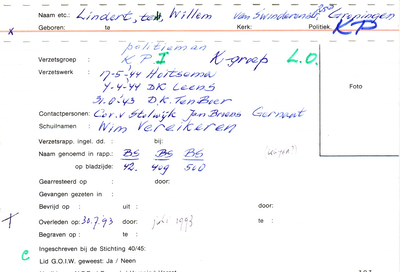 Naam etc.: Lindert, ten, Willem van Swinderenstr, Groningen
Geboren: te Kerk: Politiek: KP
politieman
Verzetsgroep : KP I K-groep L.O.
Verzetswerk : 17-5-44 Hoitsema
7-4-44 DK Leens
31-8-43 D.K. Ten Boer
Foto
Contactpersonen: Cor. v Stolwijk Jan Brons
Schuilnamen : Wim Vereikeren
Verzetsrapp. ingel. dd. : bij:
Naam genoemd in rapp.: BS BS BS
op bladzijde: 42. 409 500
Gearresteerd op : door:
Gevangen gezeten in :
Bevrijd op : uit : door:
Overleden op: 30.7.93 door: juli 1993 te :
Begraven op : te :
Ingeschreven bij de Stichting 40/45:
Lid G.O.I.W. geweest: Ja / Neen